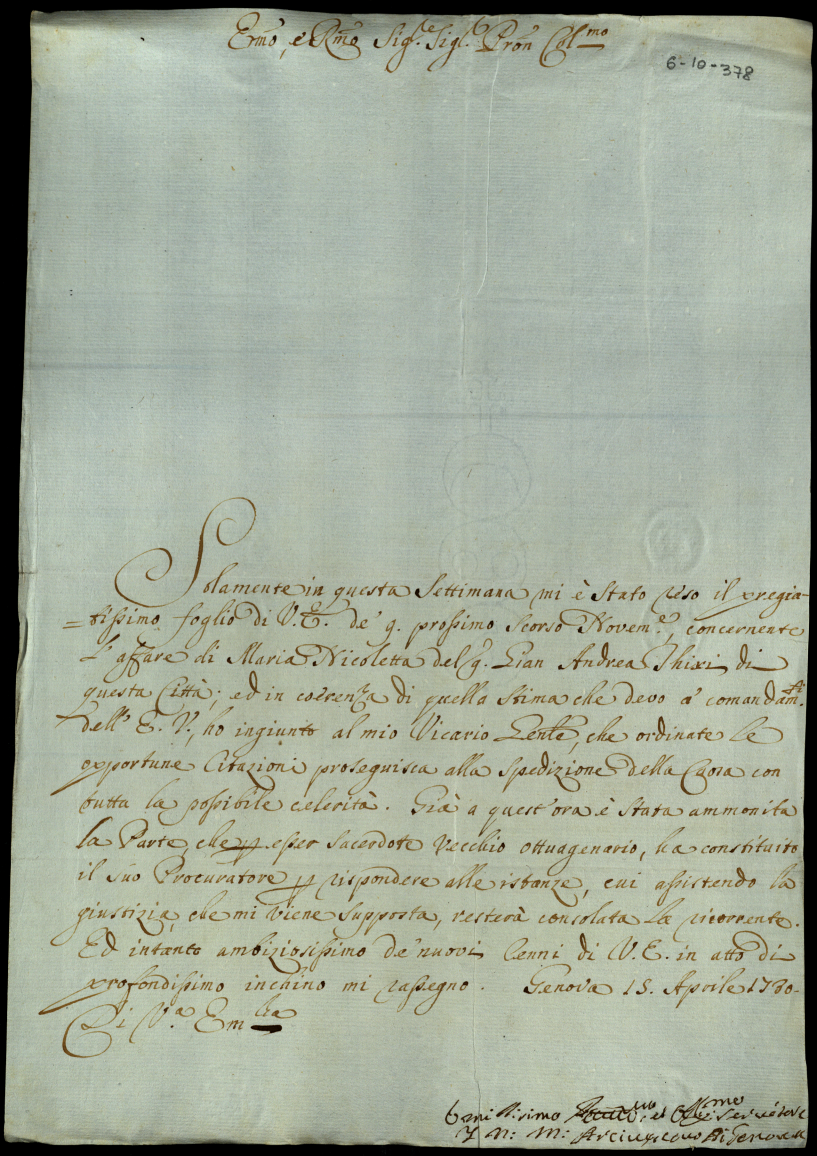 Emo, e Rmo Sig.re Sig.re Pron Col.mo
6-10-378
Solamente in questa Settimana mi è stato reso il pregia-
=tissimo foglio di V.E. de' 9. prossimo scorso Novem.e, concernente
l'affare di Maria Nicoletta del q. Gian Andrea Ghixi di
questa Città; ed in coerenza di quella stima che devo a' comandam.ti
dell'E.V., ho ingiunto al mio Vicario Gen.le, che ordinate le
opportune Citazioni proseguisca alla spedizione della Causa con
tutta la possibile celerità. Già a quest'ora è stata ammonita
la Parte, che p esser Sacerdote vecchio ottuagenario, ha constituito
il suo Procuratore p rispondere alle istanze, cui assistendo la
giustizia, che mi viene supposta, resterà consolata la ricorrente.
Ed intanto ambiziosissimo de' nuovi Cenni di V.E. in atto di
profondissimo inchino mi rassegno. Genova 15. Aprile 1780.
Di V.a Em.za
Umilissimo et servitore
Arcivescovo di Genova